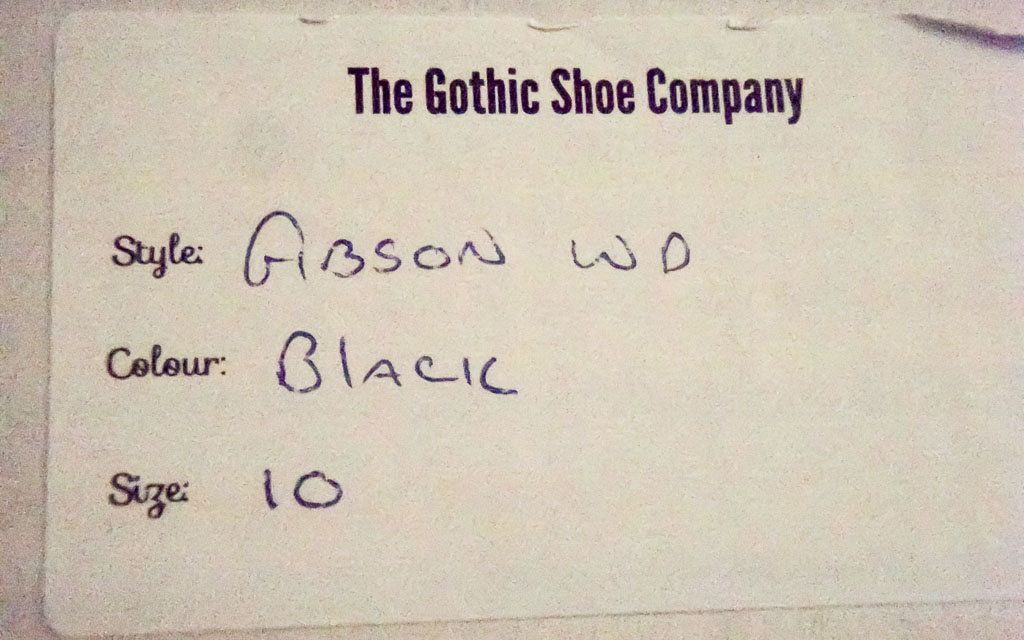 The Gothic Shoe Company
Style: GIBSON WD
Colour: BlACK
Size: 10